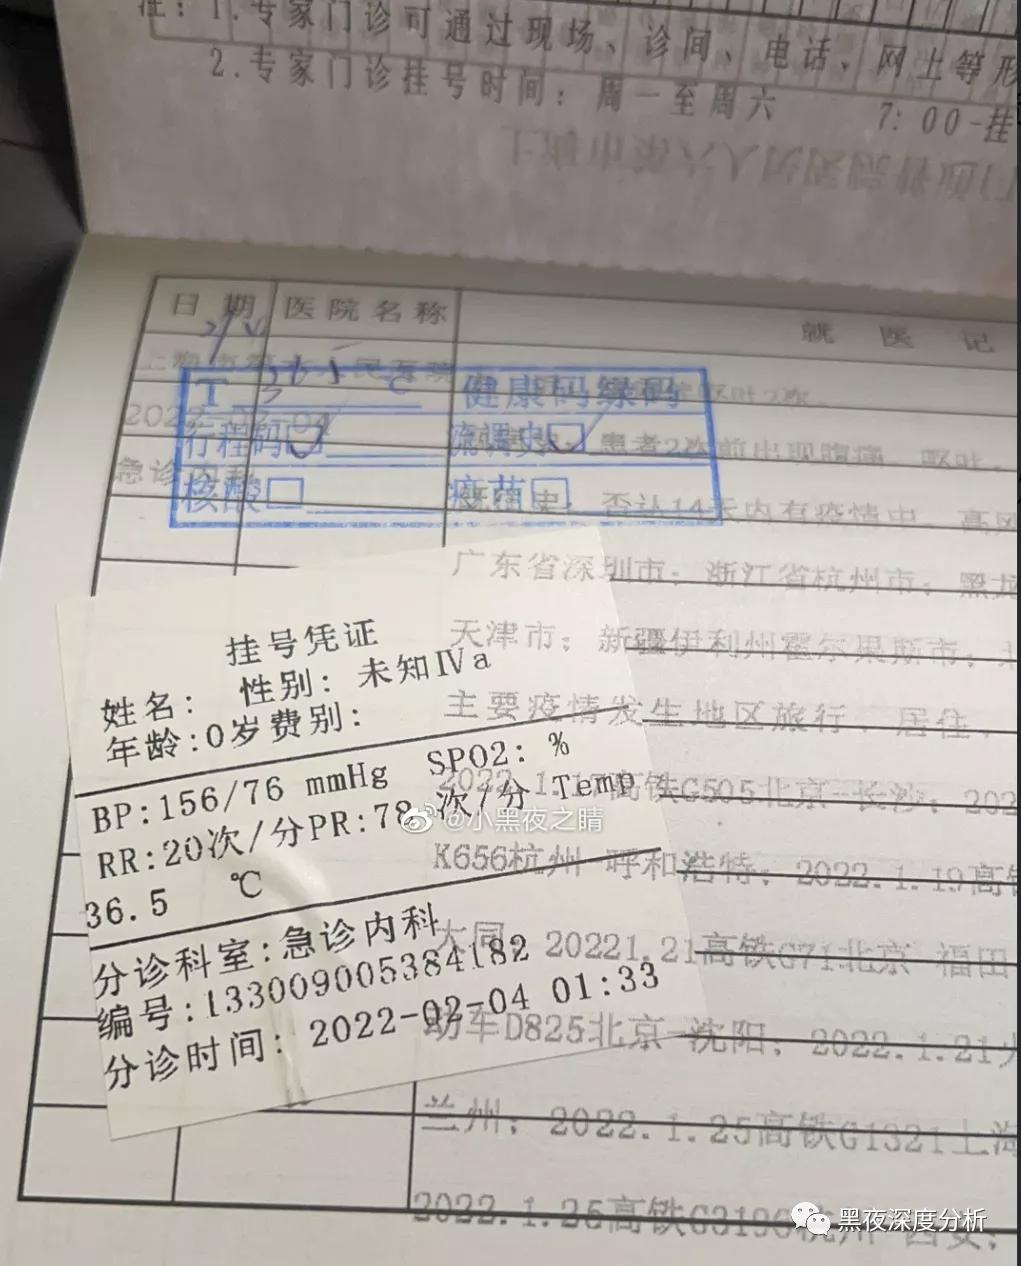 注：1.专家门诊可通过现场、诊间、电话、网上等形
2.专家门诊挂号时间：周一至周六 7:00-挂
日期 医院名称 就医记
2022-02-04
急诊内科
T 36.5 C 健康码绿码
行程码 流调史
核酸 疫苗
患者2次前出现腹痛、呕吐，
史：否认14天内有疫情中、高风
广东省深圳市；浙江省杭州市；黑龙
天津市；新疆伊利州霍尔果斯市；北
主要疫情发生地区旅行、居住、
高铁G505北京-长沙；202
K656杭州 呼和浩特；2022.1.19高铁
大同 20221.21高铁G71北京 福田
动车D825北京-沈阳；2022.1.21火
兰州；2022.1.25高铁G1321上海
2022.1.26高铁
挂号凭证
姓名： 性别：未知Ⅳa
年龄:0岁费别：
BP:156/76 mmHg SPO2: %
RR:20次/分PR:78 次/分 Temp
36.5 ℃
分诊科室:急诊内科
编号:133009005384182
分诊时间：2022-02-04 01:33
@小黑夜之睛
黑夜深度分析